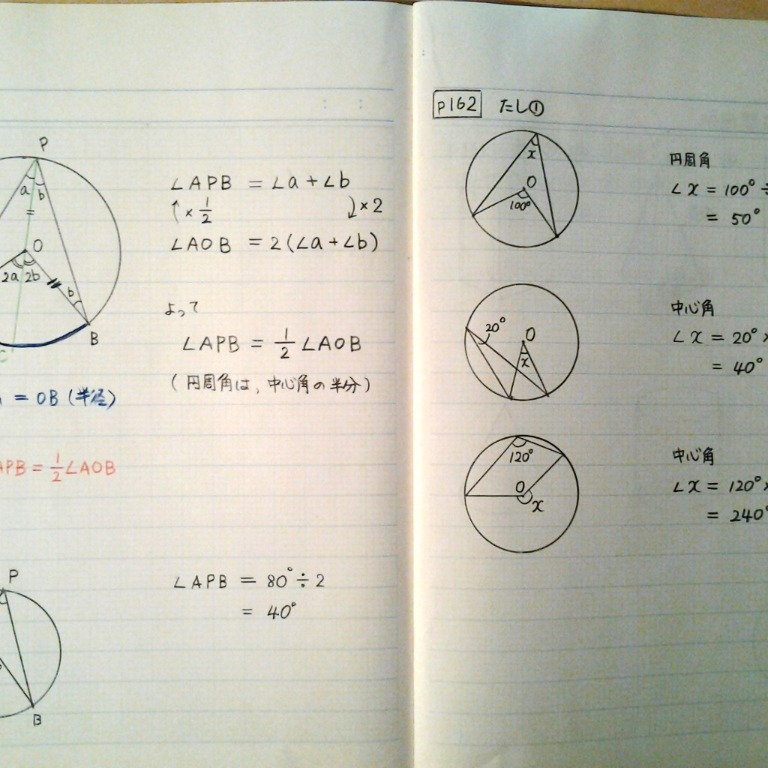 P
a b
=
O
2a 2b
b
B
= OB (半径)
APB = 1/2 ∠AOB
∠APB = ∠a + ∠b
× 1/2 × 2
∠AOB = 2(∠a + ∠b)
よって
∠APB = 1/2 ∠AOB
(円周角は、中心角の半分)
P
B
∠APB = 80° ÷ 2
= 40°
P162 たし①
x
O
100°
円周角
∠x = 100° ÷
= 50°
20°
O
x
中心角
∠x = 20° ×
= 40°
120°
O
x
中心角
∠x = 120° ×
= 240°